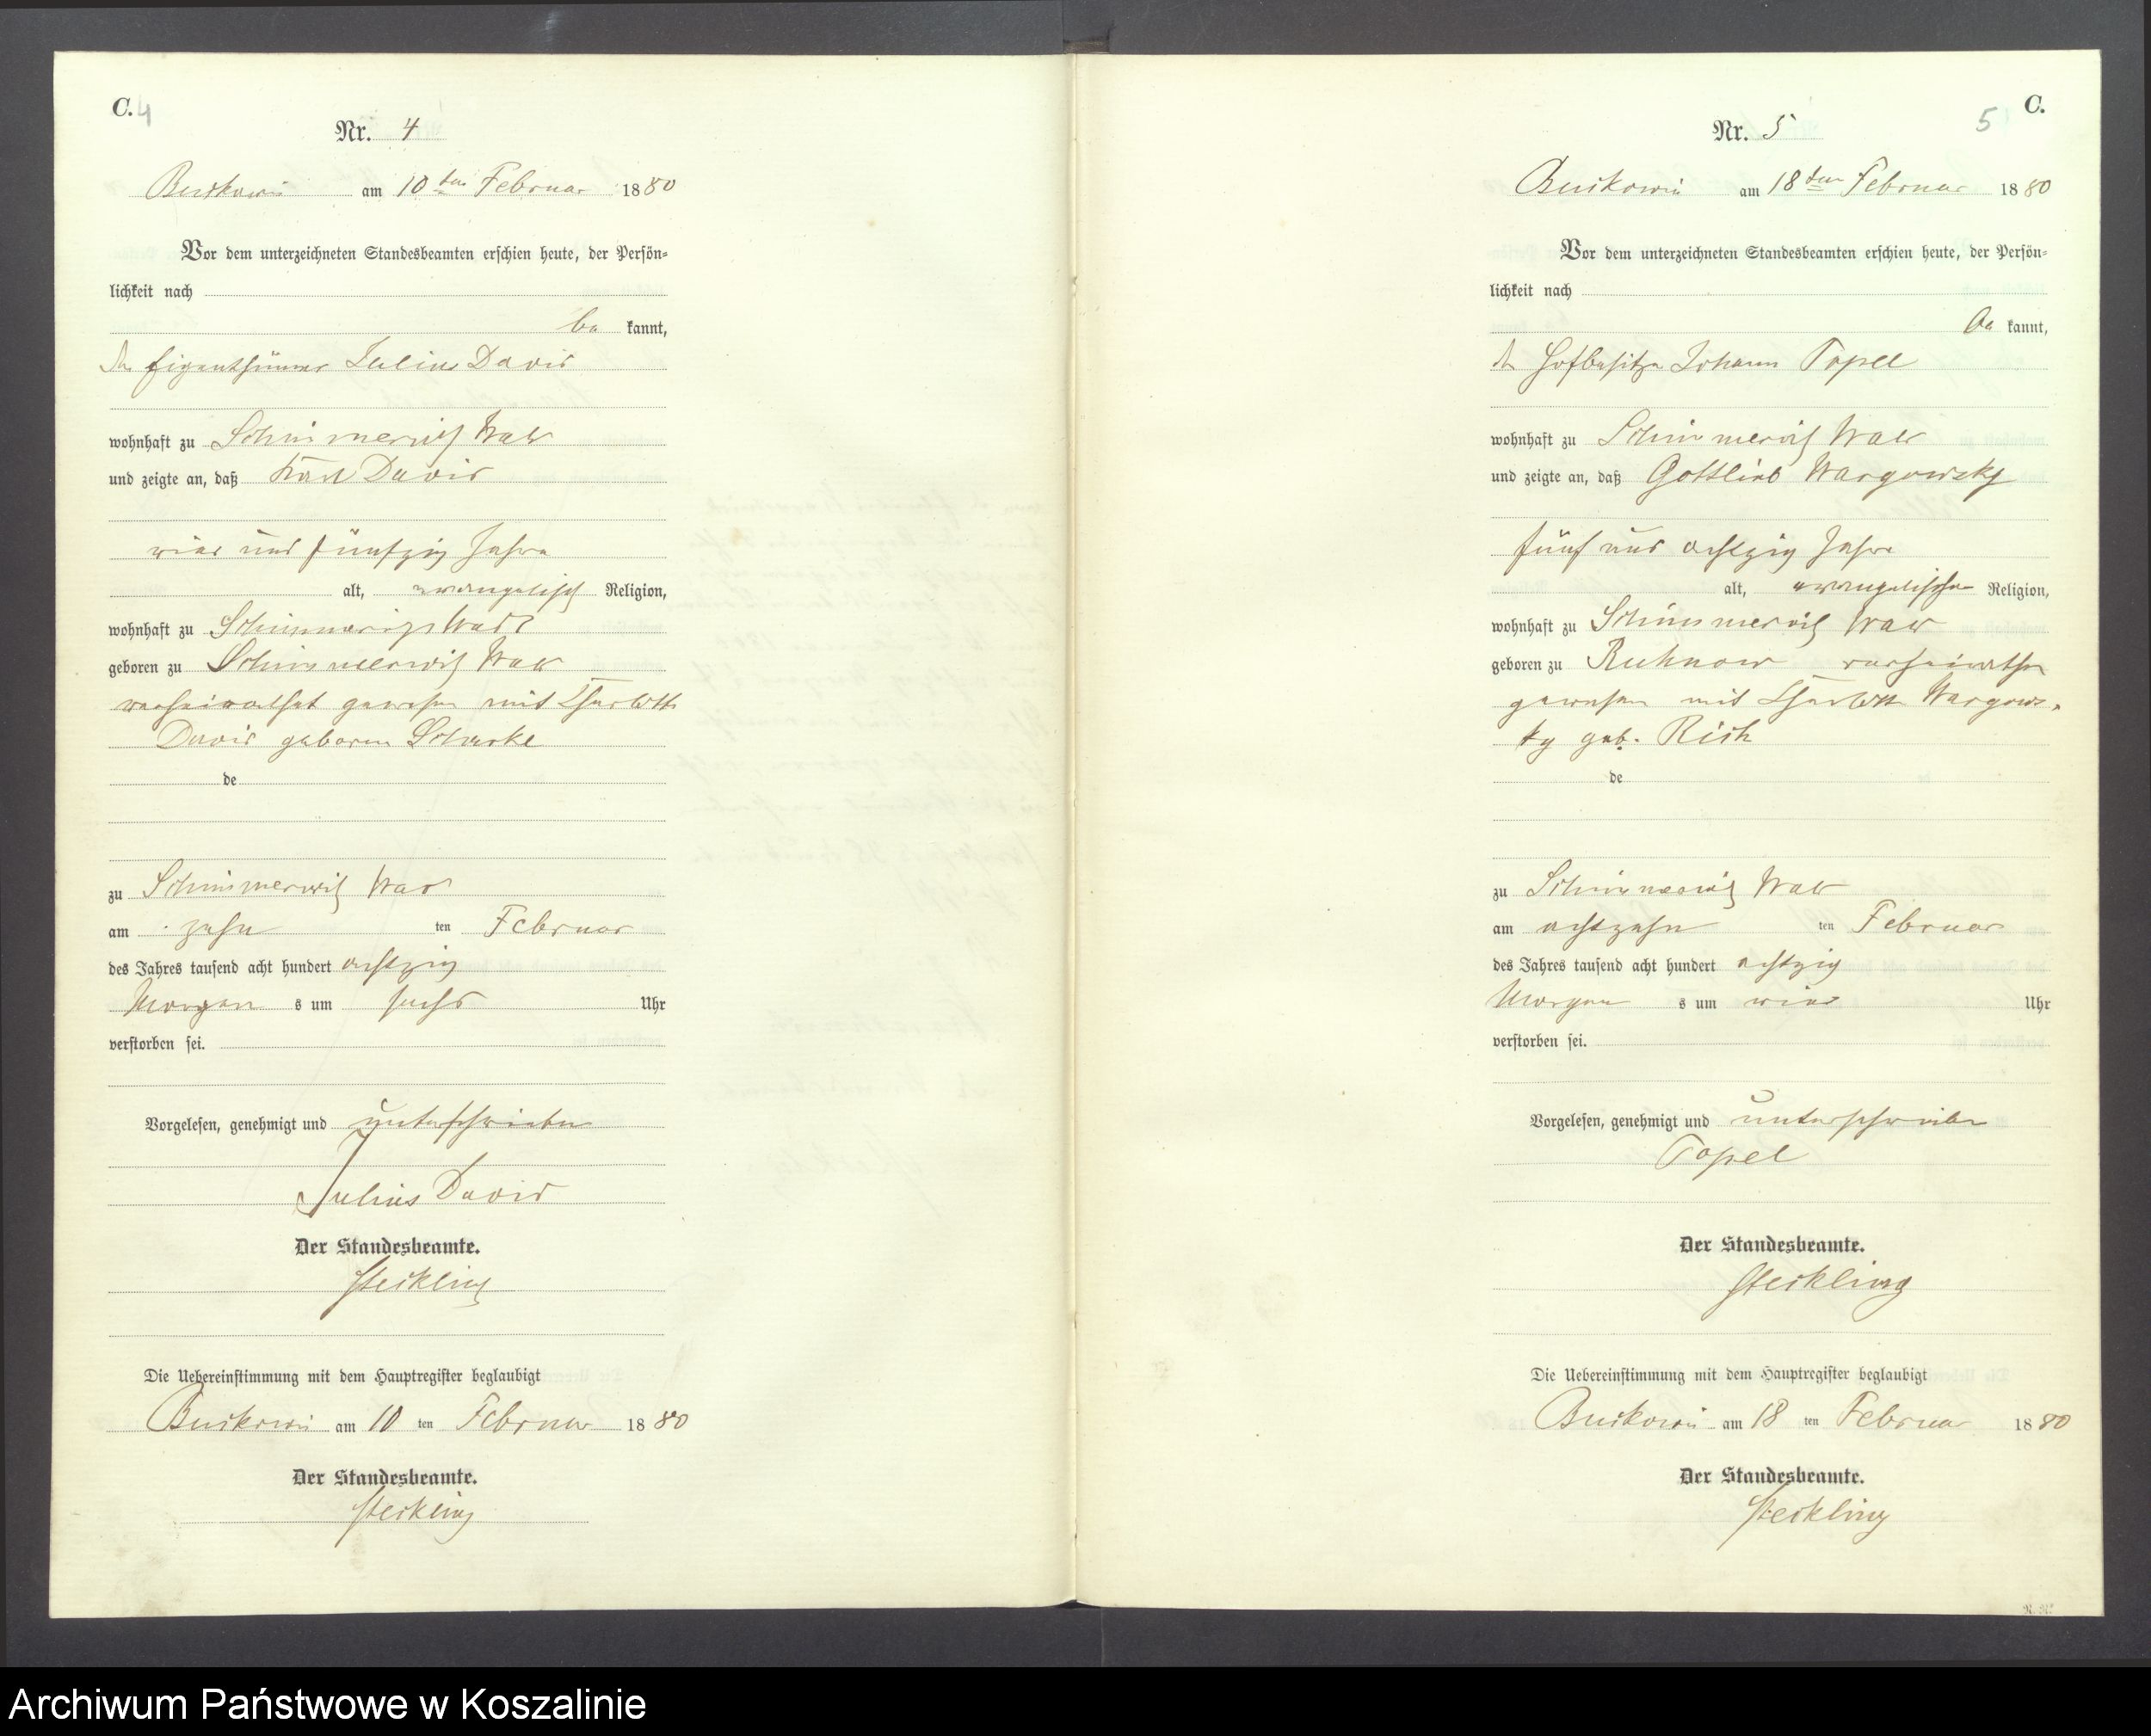 C. 4
Nr. 4
Buckowin am 10ten Februar 1880
Vor dem unterzeichneten Standesbeamten erschien heute, der Persön=
lichkeit nach
be kannt,
der Eigenthümer Julius David
wohnhaft zu Schimmerwitz Wald
und zeigte an, daß Karl David
vier und fünfzig Jahre
alt, evangelisch Religion,
wohnhaft zu Schimmerwitz Wald
geboren zu Schimmerwitz Wald
verheirathet gewesen mit Charlotte
David geboren
de
zu Schimmerwitz Wald
am zehn ten Februar
des Jahres tausend acht hundert achtzig
Morgen s um sechs Uhr
verstorben sei.
Vorgelesen, genehmigt und unterschrieben
Julius David
Der Standesbeamte.
Steckling
Die Uebereinstimmung mit dem Hauptregister beglaubigt
Buckowin am 10 ten Februar 1880
Der Standesbeamte.
Steckling
5 C.
Nr. 5
Buckowin am 18ten Februar 1880
Vor dem unterzeichneten Standesbeamten erschien heute, der Persön=
lichkeit nach
be kannt,
der Hofbesitzer Johann Topel
wohnhaft zu Schimmerwitz Wald
und zeigte an, daß Gottlieb Wargowsky
fünf und achtzig Jahre
alt, evangelischer Religion,
wohnhaft zu Schimmerwitz Wald
geboren zu Ruhnow verheirathet
gewesen mit Charlotte Wargows-
ky geb. Rich
de
zu Schimmerwitz Wald
am achtzehn ten Februar
des Jahres tausend acht hundert achtzig
Morgen s um vier Uhr
verstorben sei.
Vorgelesen, genehmigt und unterschrieben
Topel
Der Standesbeamte.
Steckling
Die Uebereinstimmung mit dem Hauptregister beglaubigt
Buckowin am 18 ten Februar 1880
Der Standesbeamte.
Steckling
Archiwum Państwowe w Koszalinie